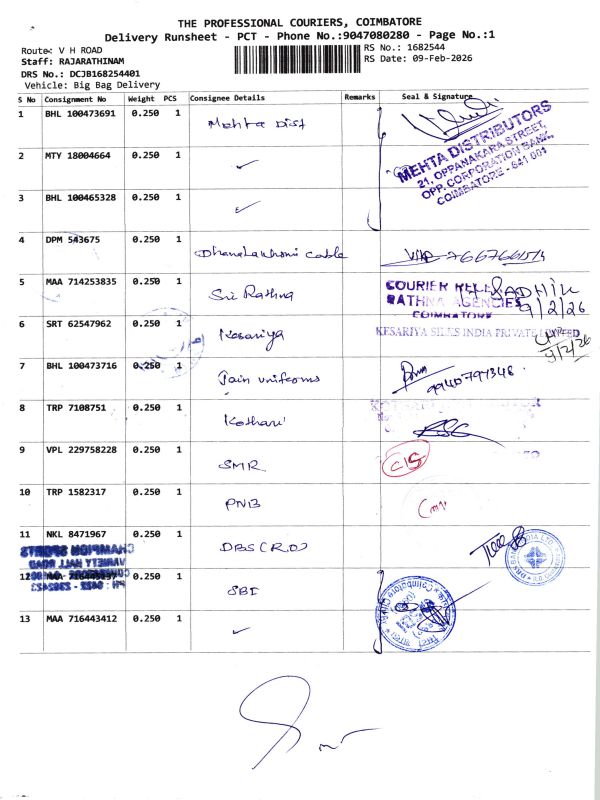 THE PROFESSIONAL COURIERS, COIMBATORE
Delivery Runsheet - PCT - Phone No.:9047080280 - Page No.:1
Route: V H ROAD
RS No.: 1682544
Staff: RAJARATHINAM
RS Date: 09-Feb-2026
DRS No.: DCJB168254401
Vehicle: Big Bag Delivery
S No Consignment No Weight PCS Consignee Details Remarks Seal & Signature
1 BHL 100473691 0.250 1 Mehta Dist
MEHTA DISTRIBUTORS
21, OPPANAKARA STREET,
OPP. CORPORATION BANK,
COIMBATORE - 641 001
2 MTY 18004664 0.250 1 ✓
3 BHL 100465328 0.250 1 ✓
4 DPM 543675 0.250 1 Dhanalakshmi Cable
5 MAA 714253835 0.250 1 Sri Rathna
COURIER
RATHNA AGENCIES
COIMBATORE
9/2/26
6 SRT 62547962 0.250 1 Kesariya
KESARIYA SILKS INDIA PRIVATE LIMITED
9/2/26
7 BHL 100473716 0.250 1 Jain uniforms
9940797348
8 TRP 7108751 0.250 1 Kothari
9 VPL 229758228 0.250 1 SMR
10 TRP 1582317 0.250 1 PNB
11 NKL 8471967 0.250 1 DBS (R.O)
CHAMPION SPORTS
VARIETY HALL ROAD
12 0.250 1 SBI
13 MAA 716443412 0.250 1 ✓